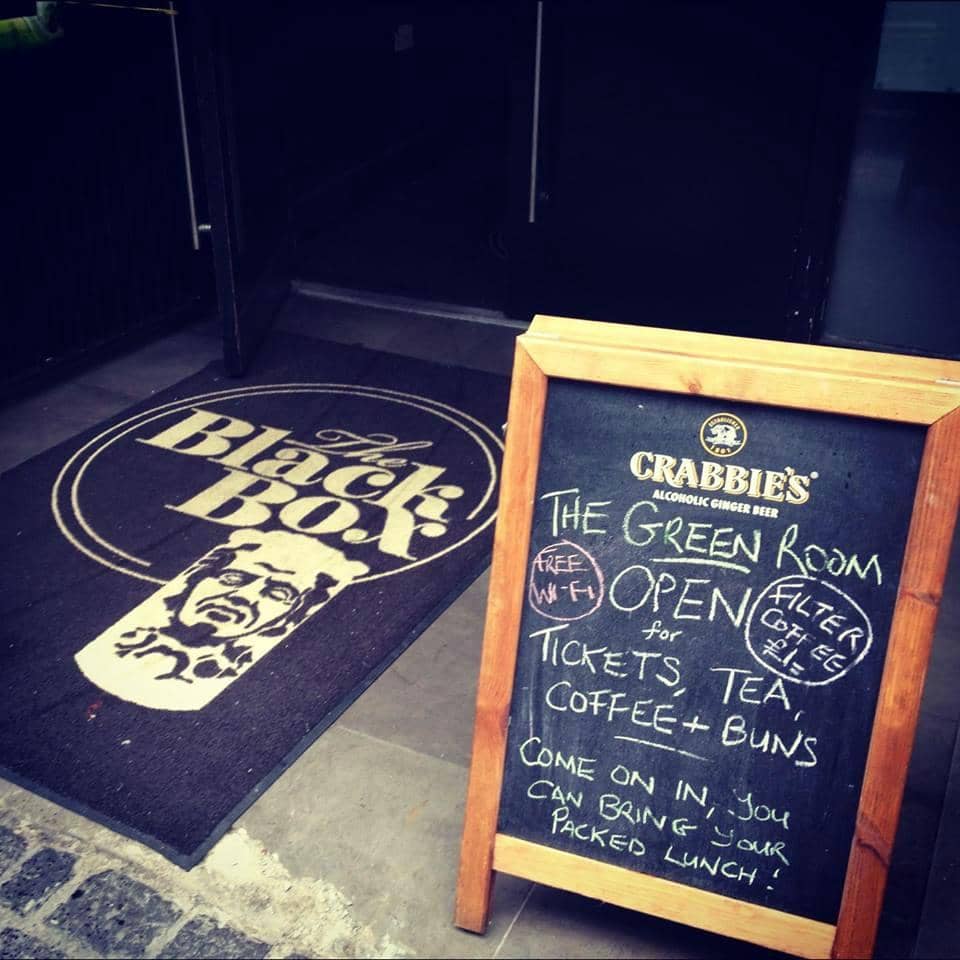 The
Black
Box
ESTABLISHED
1801
CRABBIE'S®
ALCOHOLIC GINGER BEER
THE GREEN ROOM
FREE
WI-FI
OPEN
for
FILTER
COFFEE
£1=
TICKETS, TEA,
COFFEE + BUNS
COME ON IN, YOU
CAN BRING YOUR
PACKED LUNCH!